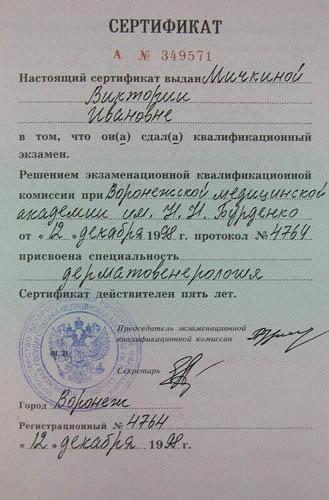 СЕРТИФИКАТ
А № 349571
Настоящий сертификат выдан Мичкиной
Виктории
Ивановне
в том, что он(а) сдал(а) квалификационный
экзамен.
Решением экзаменационной квалификационной
комиссии при Воронежской медицинской
академии им. Н. Н. Бурденко
от «12» декабря 1998 г. протокол № 4764
присвоена специальность
дерматовенерология
Сертификат действителен пять лет.
Председатель экзаменационной
квалификационной комиссии
М.П.
Секретарь
Город Воронеж
Регистрационный № 4764
«12» декабря 1998 г.